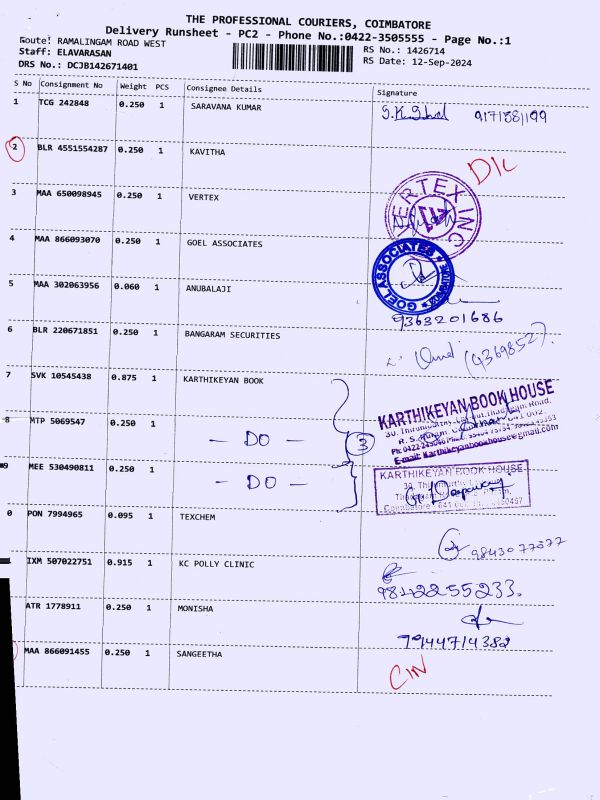 THE PROFESSIONAL COURIERS, COIMBATORE
Delivery Runsheet - PC2 - Phone No.:0422-3505555 - Page No.:1
Route: RAMALINGAM ROAD WEST
Staff: ELAVARASAN
RS No.: 1426714
DRS No.: DCJB142671401
RS Date: 12-Sep-2024
S No Consignment No Weight PCS Consignee Details Signature
1 TCG 242848 0.250 1 SARAVANA KUMAR
2 BLR 4551554287 0.250 1 KAVITHA
3 MAA 650098945 0.250 1 VERTEX VERTEX INC
4 MAA 866093070 0.250 1 GOEL ASSOCIATES GOEL ASSOCIATES
5 MAA 302063956 0.060 1 ANUBALAJI
9363201686
6 BLR 220671851 0.250 1 BANGARAM SECURITIES
7 SVK 10545438 0.875 1 KARTHIKEYAN BOOK
KARTHIKEYAN BOOK HOUSE
E-mail: Karthikeyanbookhouse@gmail.com
8 MTP 5069547 0.250 1
- DO - 3
9 MEE 530490811 0.250 1
- DO -
KARTHIKEYAN BOOK HOUSE
0 PON 7994965 0.095 1 TEXCHEM
IXM 507022751 0.915 1 KC POLLY CLINIC
9842255233
ATR 1778911 0.250 1 MONISHA
7944714382
MAA 866091455 0.250 1 SANGEETHA